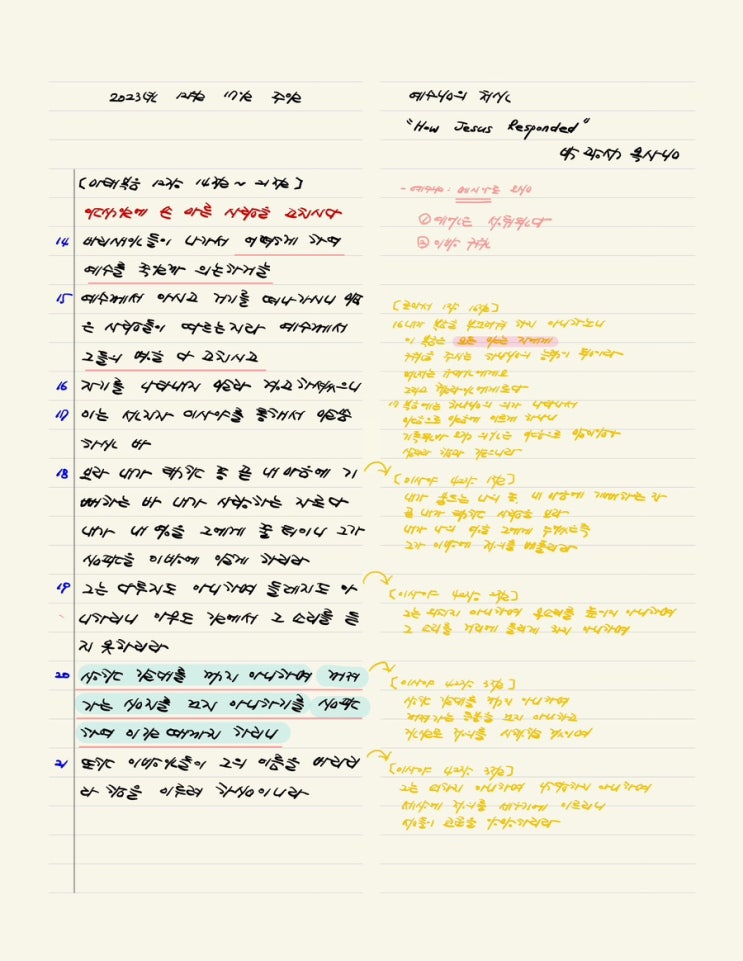 2023년 12월 17일 주일
[마태복음 12장 14절 ~ 21절]
안식일에 손 마른 사람을 고치시다
14 바리새인들이 나가서 어떻게 하여
예수를 죽일까 의논하거늘
15 예수께서 아시고 거기를 떠나가시니 많
은 사람들이 따르는지라 예수께서
그들의 병을 다 고치시고
16 자기를 나타내지 말라 경고하셨으니
17 이는 선지자 이사야를 통하여 말씀
하신 바
18 보라 내가 택한 종 곧 내 마음에 기
뻐하는 바 내가 사랑하는 자로다
내가 내 영을 그에게 줄 터이니 그가
심판을 이방에 알게 하리라
19 그는 다투지도 아니하며 들레지도 아
니하리니 아무도 길에서 그 소리를 듣
지 못하리라
20 상한 갈대를 꺾지 아니하며 꺼져
가는 심지를 끄지 아니하기를 심판
하여 이길 때까지 하리니
21 또한 이방인들이 그의 이름을 바라리
라 함을 이루려 하심이니라
예수님의 처신
"How Jesus Responded"
목사님
- 예수님: 메시아로 오심
① 예언은 성취된다
② 이방 구원
[로마서 1장 16절]
16 내가 복음을 부끄러워 하지 아니하노니
이 복음은 모든 믿는 자에게
구원을 주시는 하나님의 능력이 됨이라
먼저는 유대인에게요
그리고 헬라인에게로다
17 복음에는 하나님의 의가 나타나서
믿음으로 믿음에 이르게 하나니
기록된바 오직 의인은 믿음으로 말미암아
살리라 함과 같으니라
[이사야 42장 1절]
내가 붙드는 나의 종 내 마음에 기뻐하는 자
곧 내가 택한 사람을 보라
내가 나의 영을 그에게 주었은즉
그가 이방에 정의를 베풀리라
[이사야 42장 2절]
그는 외치지 아니하며 목소리를 높이지 아니하며
그 소리를 거리에 들리게 하지 아니하며
[이사야 42장 3절]
상한 갈대를 꺾지 아니하며
꺼져가는 등불을 끄지 아니하고
진실로 정의를 시행할 것이며
[이사야 42장 3절]
그는 쇠하지 아니하며 낙담하지 아니하며
세상에 정의를 세우기에 이르리니
섬들이 교훈을 앙망하리라